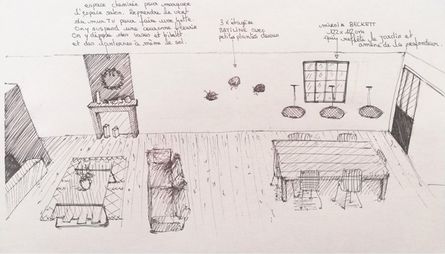 espace cheminée pour marquer
l'espace salon. Reprendre le vert
du mur TV pour faire une hotte
On y suspend une couronne fleurie
On y dépose des vases et
et des lanternes à même le sol.
3 x étagère
avec
petites plantes dessus
miroir BECKETT
122 x cm
qui reflète le jardin et
amène de la profondeur.